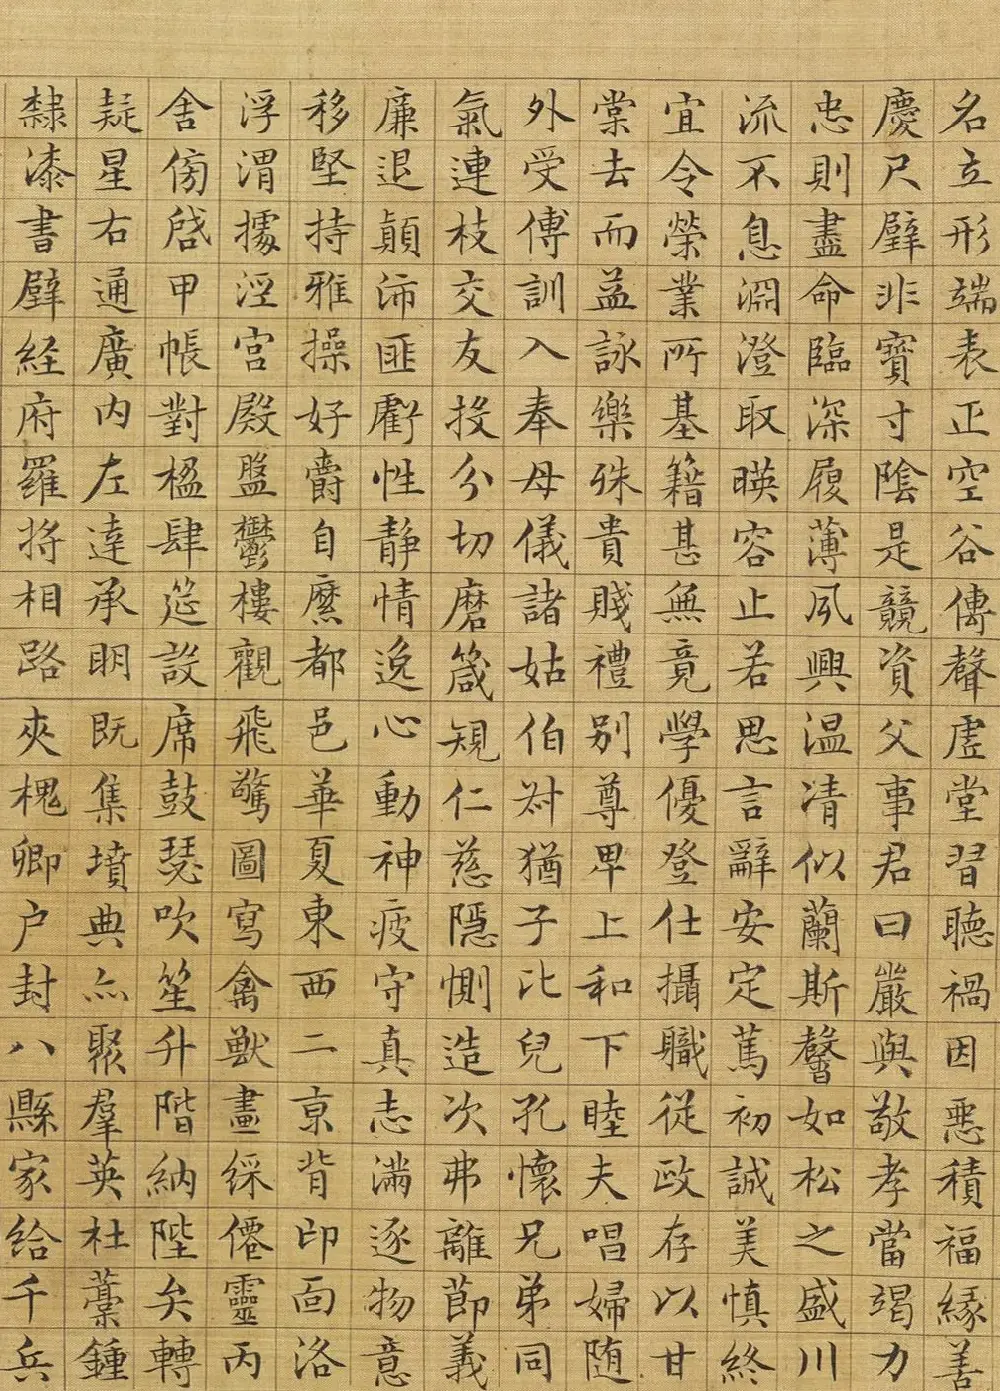 名立形端表正空谷傳聲虛堂習聽禍因惡積福緣善
慶尺璧非寶寸陰是競資父事君曰嚴與敬孝當竭力
忠則盡命臨深履薄夙興温凊似蘭斯馨如松之盛川
流不息淵澄取暎容止若思言辭安定篤初誠美慎終
宜令榮業所基籍甚無竟學優登仕攝職從政存以甘
棠去而益詠樂殊貴賤禮別尊卑上和下睦夫唱婦随
外受傅訓入奉母儀諸姑伯叔猶子比兒孔懷兄弟同
氣連枝交友投分切磨箴規仁慈隱惻造次弗離節義
廉退顛沛匪虧性静情逸心動神疲守真志滿逐物意
移堅持雅操好爵自縻都邑華夏東西二亰背邙面洛
浮渭據涇宫殿盤鬱樓觀飛驚圖寫禽獸畫綵僊靈丙
舍傍啓甲帳對楹肆筵設席鼓瑟吹笙升階納陛矣轉
疑星右通廣内左達承明既集墳典亦聚羣英杜藁鍾
隸漆書壁経府羅將相路夾槐卿户封八縣家給千兵